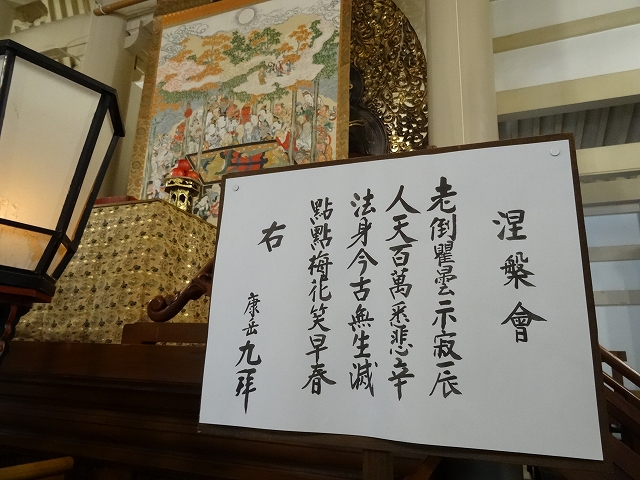 涅槃會
老倒瞿曇示寂辰
人天百萬悉悲辛
法身今古無生滅
點點梅花笑早春
右
康岳九拜